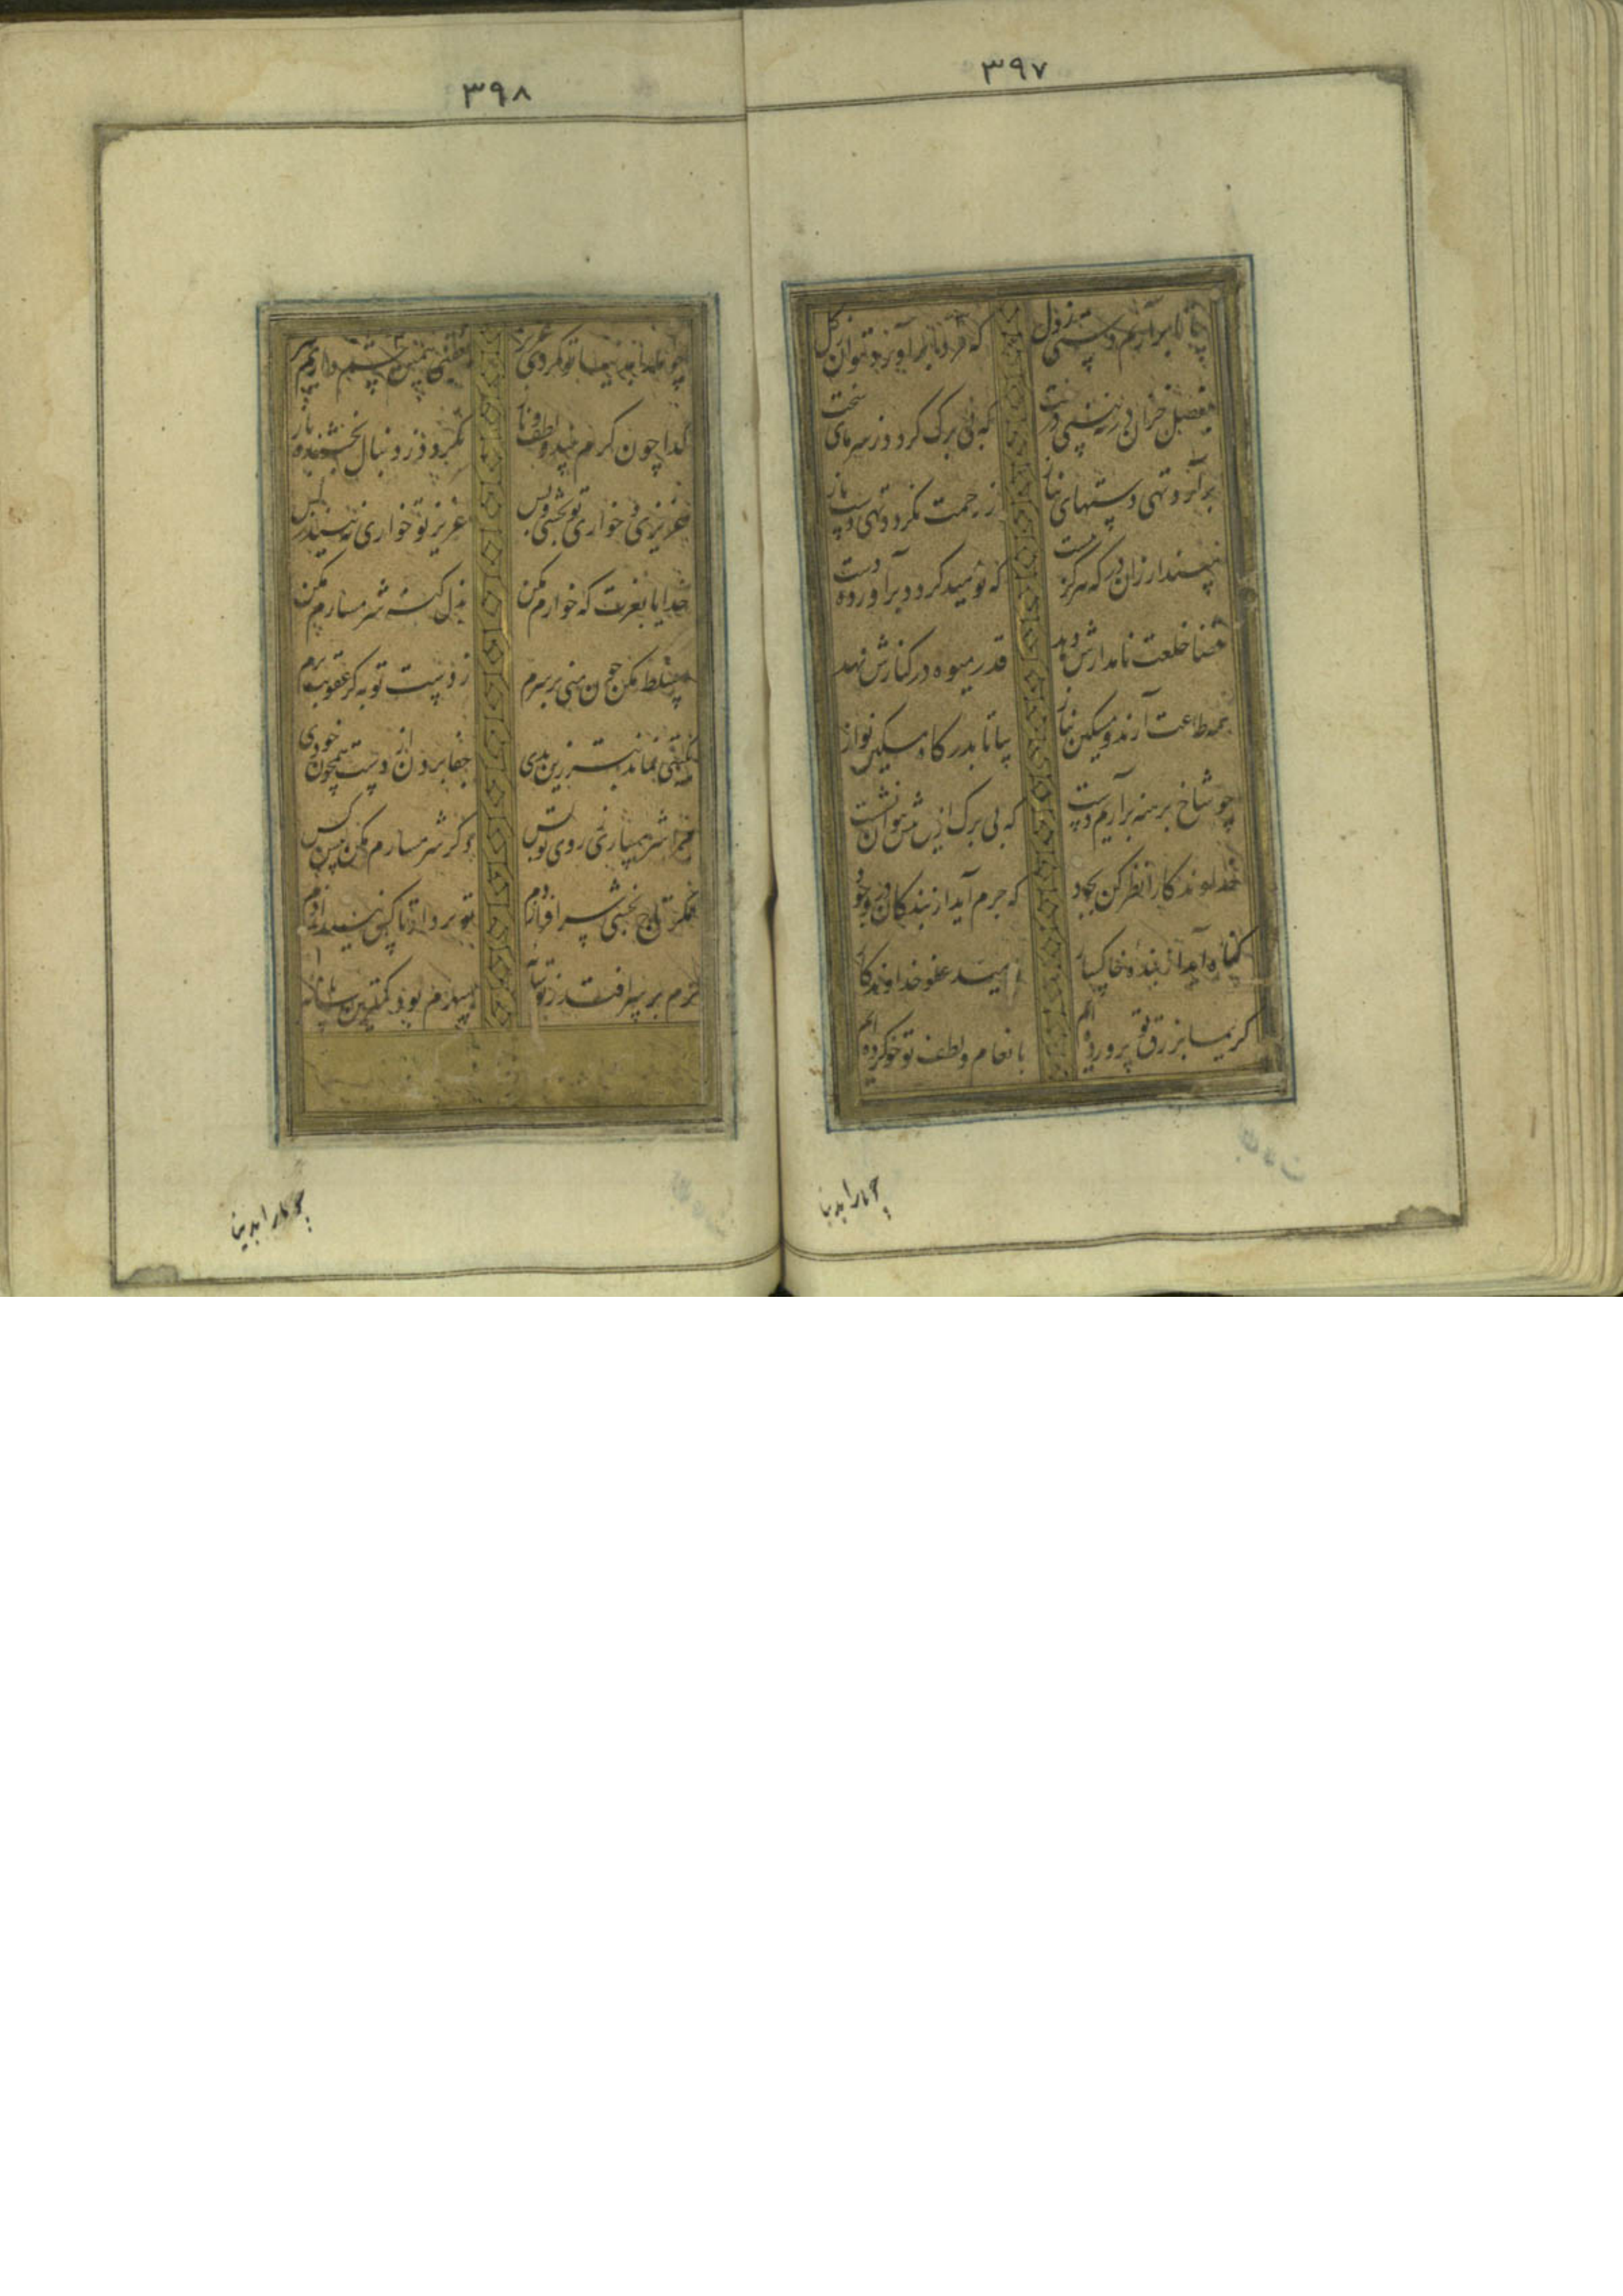 ۳۹۷
بیا تا برآریم دستی ز دل
که فردا برآورد نتوان ز گل
بفصل خزان در نبینی درخت
که بی برک کردد ز سرمای سخت
برآرد تهی دستهای نیاز
ز رحمت نکردد تهی دست باز
مپندار زان در که هرکز نبست
که نومید کردد برآورده دست
قضا خلعت نامدارش دهد
قدر میوه در کنارش نهد
همه طاعت آرند و مسکین نیاز
بیا تا بدرکاه مسکین نواز
چو شاخ برهنه برآریم دست
که بی برک ازین بیش نتوان نشست
خداوندکارا نظر کن بجود
که جرم آید از بندکان در وجود
کناه آید از بنده خاکسار
بامید عفو خداوندکار
کریما برزق تو پرورده ایم
بانعام و لطف تو خو کرده ایم
چو ما را بدنیا
۳۹۸
چو ما را بدنیا تو کردی عزیز
بعقبی همین چشم داریم نیز
کدا چون کرم بیند و لطف و ناز
نکردد ز دنبال بخشنده باز
عزیزی و خواری تو بخشی و بس
عزیز تو خواری نبیند ز کس
خدایا بعزت که خوارم مکن
بذل کنه شرمسارم مکن
مسلط مکن چون منی بر سرم
ز دست تو به کر عقوبت برم
بکیتی نباشد بتر زین بدی
جفا بردن از دست همچون خودی
مرا شرمساری ز روی تو بس
دکر شرمسارم مکن پیش کس
کرم بر سر افتد ز تو سایه
سپهرم بود کمترین پایه
چو ما را بدنیا